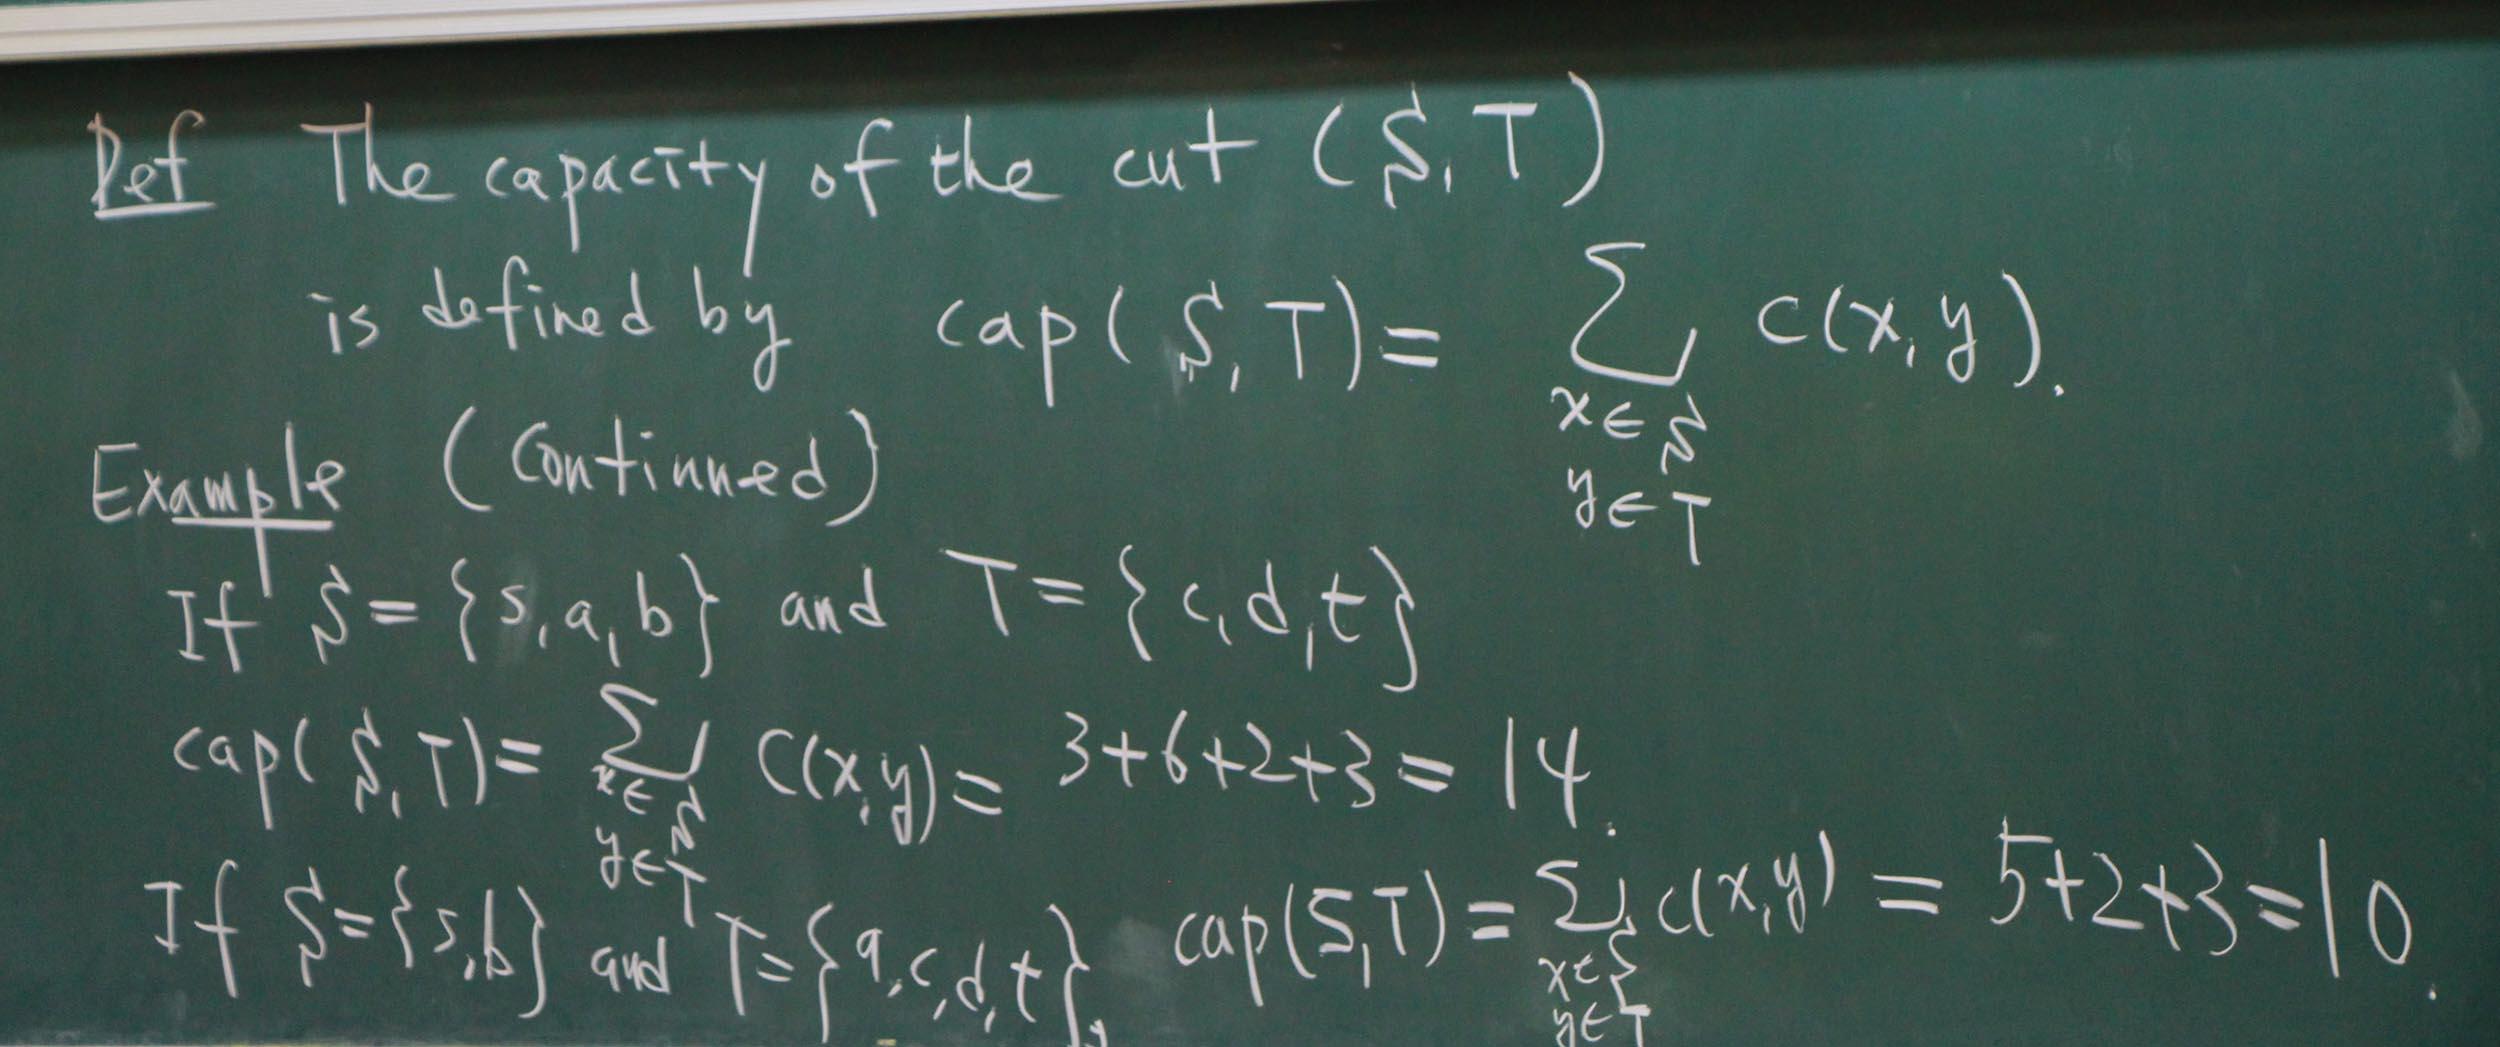 Def The capacity of the cut (S, T)
is defined by cap(S, T) = ∑ c(x, y).
x ∈ S
y ∈ T
Example (Continued)
If S = {s, a, b} and T = {c, d, t}
cap(S, T) = ∑ c(x, y) = 3+6+2+3 = 14.
x ∈ S
y ∈ T
If S = {s, b} and T = {a, c, d, t}, cap(S, T) = ∑ c(x, y) = 5+2+3 = 10.
x ∈ S
y ∈ T